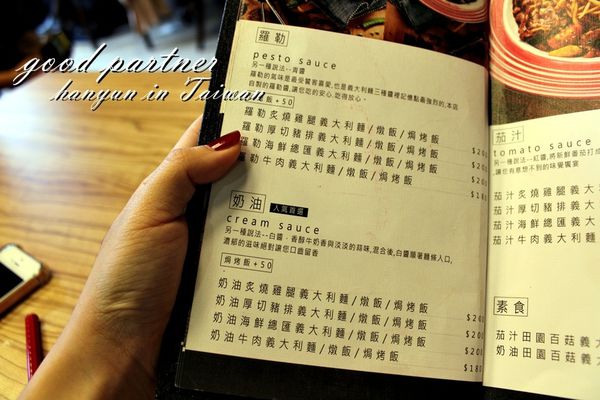 good partner
hanyun in Taiwan
羅勒
pesto sauce
另一種說法--青醬
羅勒的氣味是最受饕客喜愛,也是義大利麵三種醬裡記憶點最強烈的,本店
自製的羅勒醬,讓您吃的安心,吃得放心。
飯+50
羅勒炙燒雞腿義大利麵/燉飯/焗烤飯 $200
羅勒厚切豬排義大利麵/燉飯/焗烤飯 $200
羅勒海鮮總匯義大利麵/燉飯/焗烤飯 $200
羅勒牛肉義大利麵/燉飯/焗烤飯 $180
奶油 人氣首選
cream sauce
另一種說法--白醬,香醇牛奶香與淡淡的蒜味,混合後,白醬順著麵條入口,
濃郁的滋味絕對讓您口齒留香
焗烤+50
奶油炙燒雞腿義大利麵/燉飯/焗烤飯
奶油厚切豬排義大利麵/燉飯/焗烤飯 $200
奶油海鮮總匯義大利麵/燉飯/焗烤飯 $200
奶油牛肉義大利麵/燉飯/焗烤飯 $180
茄汁
tomato sauce
另一種說法--紅醬,將新鮮番茄打成
,讓您有意想不到的味覺饗宴
茄汁炙燒雞腿義大利
茄汁厚切豬排義大利
茄汁海鮮總匯義大利
茄汁牛肉義大利麵
素食
茄汁田園百菇義大
奶油田園百菇義大